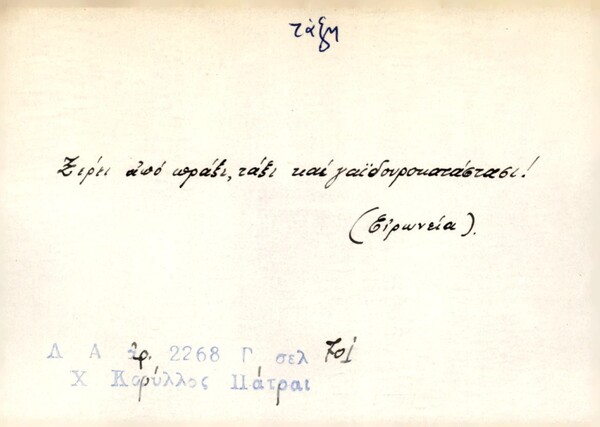 τάξη
Ξέρει ἀπό πρᾶξι, τάξι καί γαϊδουροκατάστασι!
(Εἰρωνεία).
Λ Α ἀρ. 2268 Γ σελ 701
Χ Κορύλλος Πάτραι